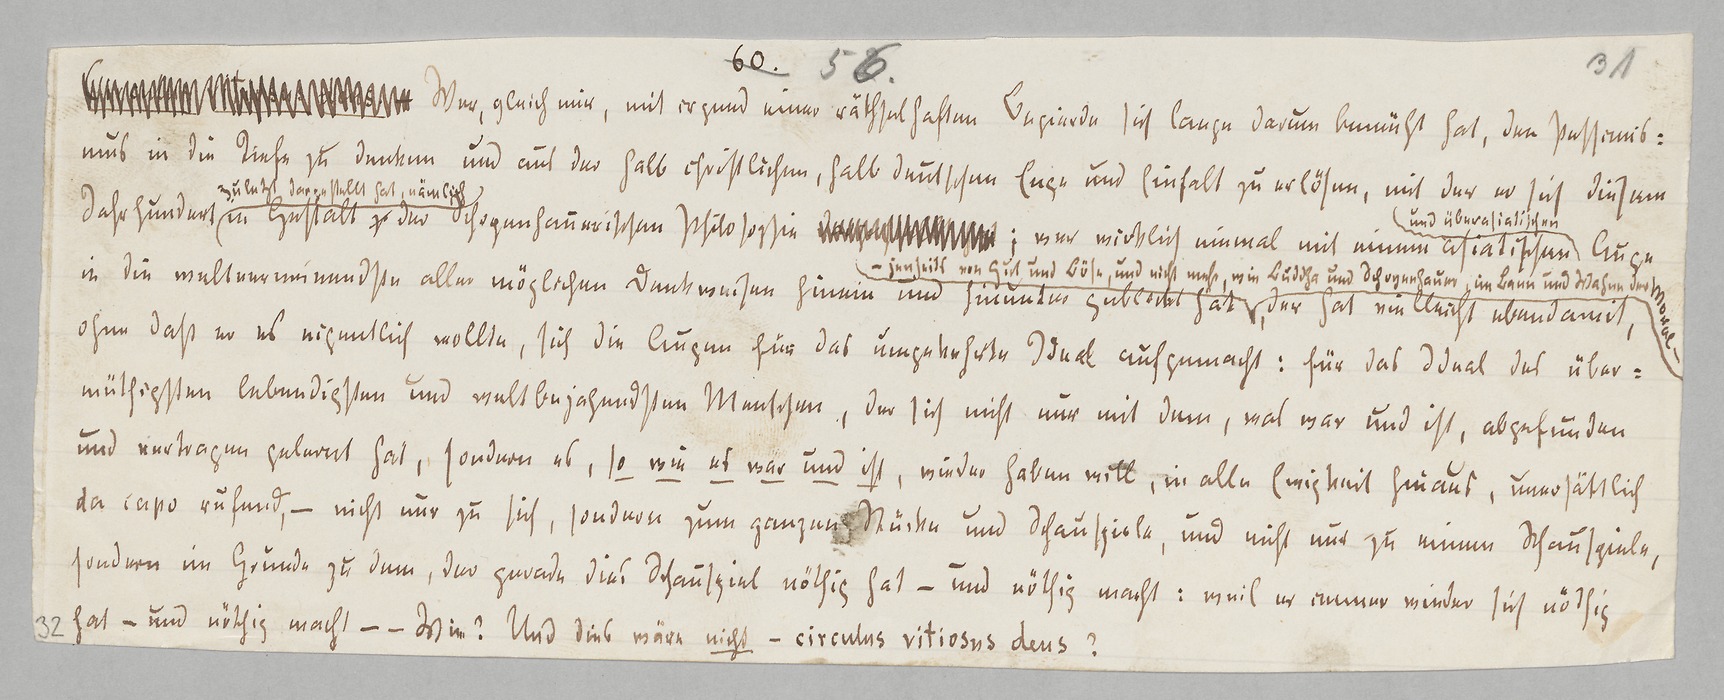 60. 56. 31
Wer, gleich mir, mit irgend einer räthselhaften Begierde sich lange darum bemüht hat, den Pessimis-
mus in die Tiefe zu denken und aus der halb christlichen, halb deutschen Enge und Einfalt zu erlösen, mit der er sich diesem
zuletzt dargestellt hat, nämlich
Jahrhundert in Gestalt der Schopenhauerischen Philosophie ; wer wirklich einmal mit einem asiatischen Auge
und überasiatischen
in die weltverneinendste aller möglichen Denkweisen hinein und hinunter geblickt hat, der hat vielleicht ebendamit,
– jenseits von Gut und Böse, und nicht mehr, wie Buddha und Schopenhauer, im Bann und Wahne der Moral –
ohne daß er es eigentlich wollte, sich die Augen für das umgekehrte Ideal aufgemacht: für das Ideal des über-
müthigsten lebendigsten und weltbejahendsten Menschen, der sich nicht nur mit dem, was war und ist, abgefunden
und vertragen gelernt hat, sondern es, so wie es war und ist, wieder haben will, in alle Ewigkeit hinaus, unersättlich
da capo rufend, – nicht nur zu sich, sondern zum ganzen Stücke und Schauspiele, und nicht nur zu einem Schauspiele,
sondern im Grunde zu dem, der gerade dies Schauspiel nöthig hat – und nöthig macht: weil er immer wieder sich nöthig
32 hat – und nöthig macht – – Wie? Und dies wäre nicht – circulus vitiosus deus?